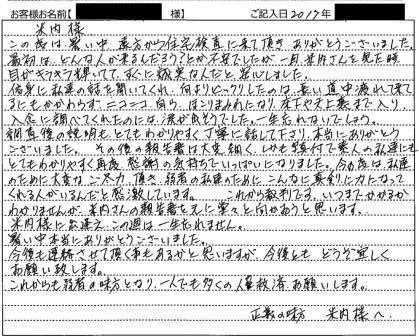 お客様お名前【 様】 ご記入日 2017年
米内 様
この度は、暑い中、遠方から住宅検査に来て頂き ありがとうございました。
最初は、どんな人が来るだろう?とか不安でしたが、一目、米内さんを見た時
目がキラキラ輝いていて、すぐに誠実な人だと、安心しました。
私達の話を聞いてくれ、何よりビックリしたのは、長い道中 疲れて来て
るにもかかわらず、ニコニコ、自ら、ほこりまみれになり、床下や天上裏まで入り、
入念に調べてくれたのには、涙が出そうでした。一生忘れないでしょう。
調査後の説明も、とてもわかりやすく丁寧に話して下さり、本当にありがとう
ございました。 その後の報告書は大変細く、しかも写真付で素人の私達にも
とてもわかりやすく再度、感謝の気持ちでいっぱいになりました。今の時は私達
のために大変なご尽力 頂き、弱者の私達のために こんなに真剣に力になって
くれる人がいるんだと感激しています。 これから裁判です。いつまでかかるか
わかりませんが、米内さんの報告書を元に堂々と向かおうと思います。
米内様に出逢えこの週は一生忘れません。
暑い中本当にありがとうございました。
今後も連絡させて頂く事もあるかと思いますが、今後とも、どうぞ宜しく
お願い致します。
これからも弱者の味方となり、一人でも多くの人を救済お願いします。
正義の味方 米内様へ.